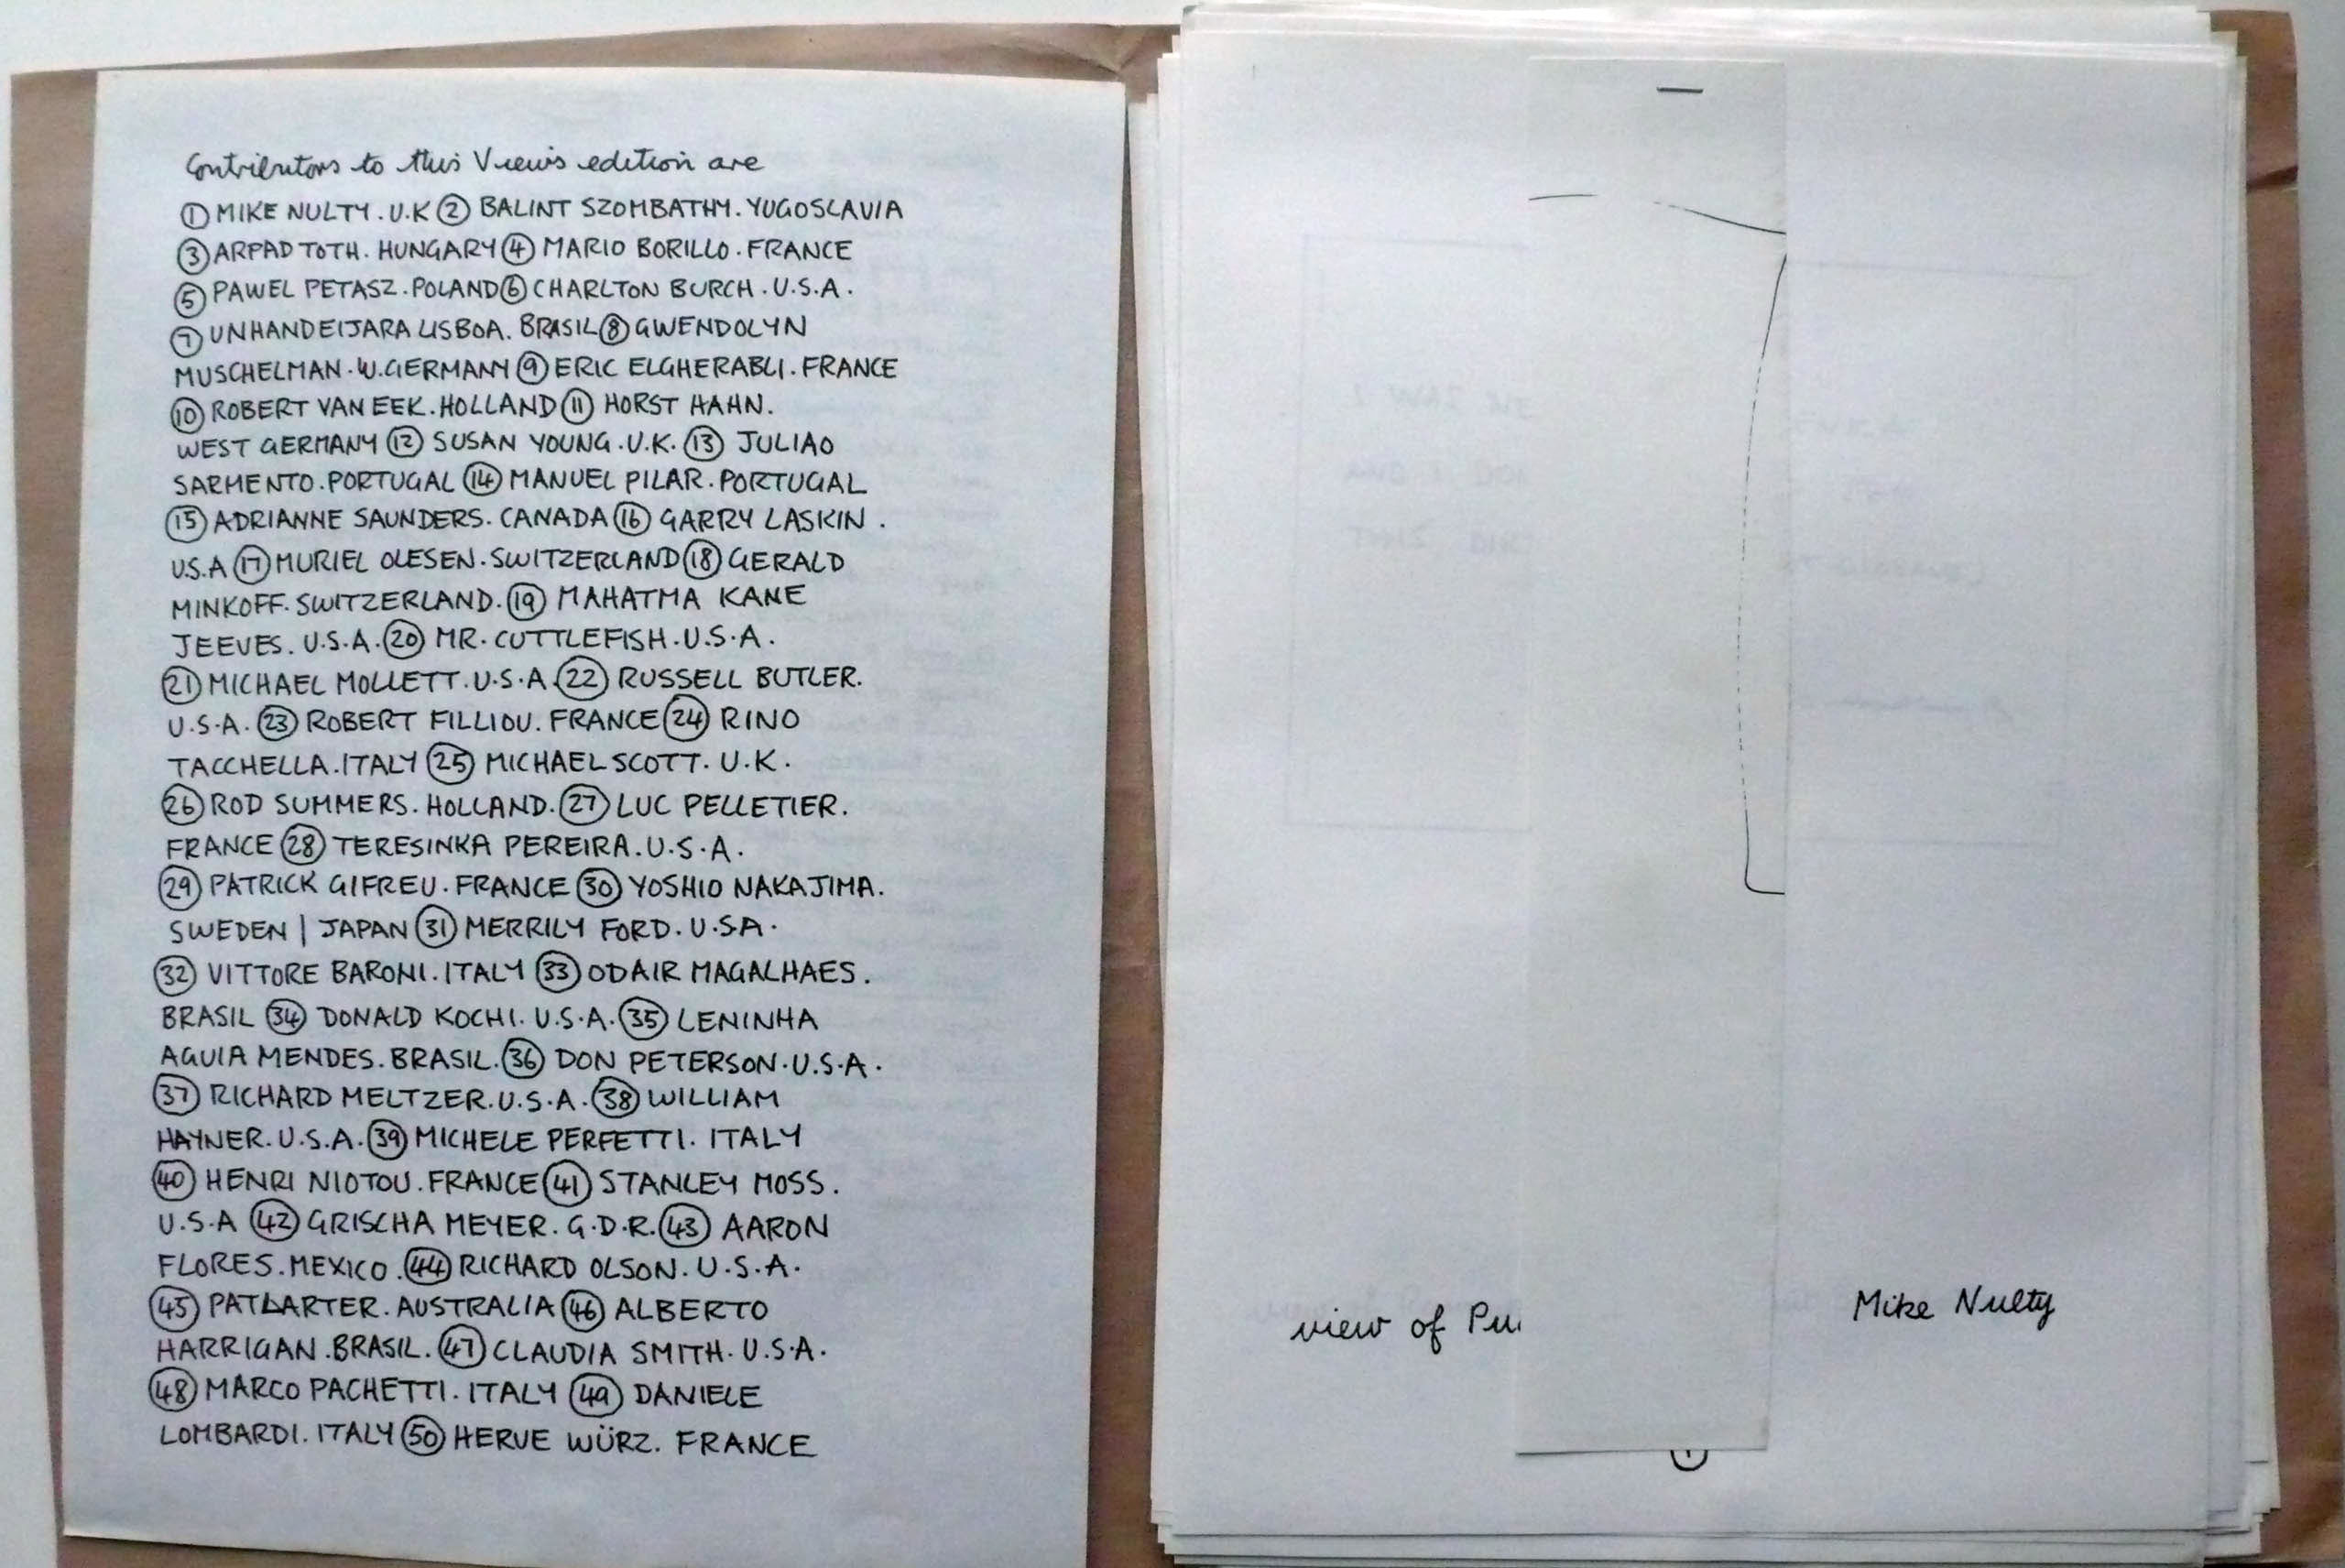 Contributors to this Views edition are
① MIKE NULTY. U.K ② BALINT SZOMBATHY. YUGOSLAVIA
③ ARPAD TOTH. HUNGARY ④ MARIO BORILLO. FRANCE
⑤ PAWEL PETASZ. POLAND ⑥ CHARLTON BURCH. U.S.A.
⑦ UNHANDEIJARA LISBOA. BRASIL ⑧ GWENDOLYN
MUSCHELMAN. W. GERMANY ⑨ ERIC ELGHERABLI. FRANCE
⑩ ROBERT VAN EEK. HOLLAND ⑪ HORST HAHN.
WEST GERMANY ⑫ SUSAN YOUNG. U.K. ⑬ JULIAO
SARMENTO. PORTUGAL ⑭ MANUEL PILAR. PORTUGAL
⑮ ADRIANNE SAUNDERS. CANADA ⑯ GARRY LASKIN.
U.S.A ⑰ MURIEL OLESEN. SWITZERLAND ⑱ GERALD
MINKOFF. SWITZERLAND. ⑲ MAHATMA KANE
JEEVES. U.S.A. ⑳ MR. CUTTLEFISH. U.S.A.
㉑ MICHAEL MOLLETT. U.S.A. ㉒ RUSSELL BUTLER.
U.S.A. ㉓ ROBERT FILLIOU. FRANCE ㉔ RINO
TACCHELLA. ITALY ㉕ MICHAEL SCOTT. U.K.
㉖ ROD SUMMERS. HOLLAND. ㉗ LUC PELLETIER.
FRANCE ㉘ TERESINKA PEREIRA. U.S.A.
㉙ PATRICK GIFREU. FRANCE ㉚ YOSHIO NAKAJIMA.
SWEDEN | JAPAN ㉛ MERRILY FORD. U.S.A.
㉜ VITTORE BARONI. ITALY ㉝ ODAIR MAGALHAES.
BRASIL ㉞ DONALD KOCHI. U.S.A. ㉟ LENINHA
AGUIA MENDES. BRASIL. ㊱ DON PETERSON. U.S.A.
㊲ RICHARD MELTZER. U.S.A. ㊳ WILLIAM
HAYNER. U.S.A. ㊴ MICHELE PERFETTI. ITALY
㊵ HENRI NIOTOU. FRANCE ㊶ STANLEY MOSS.
U.S.A ㊷ GRISCHA MEYER. G.D.R. ㊸ AARON
FLORES. MEXICO. ㊹ RICHARD OLSON. U.S.A.
㊺ PAT LARTER. AUSTRALIA ㊻ ALBERTO
HARRIGAN. BRASIL. ㊼ CLAUDIA SMITH. U.S.A.
㊽ MARCO PACHETTI. ITALY ㊾ DANIELE
LOMBARDI. ITALY ㊿ HERVE WÜRZ. FRANCE
view of
Mike Nulty